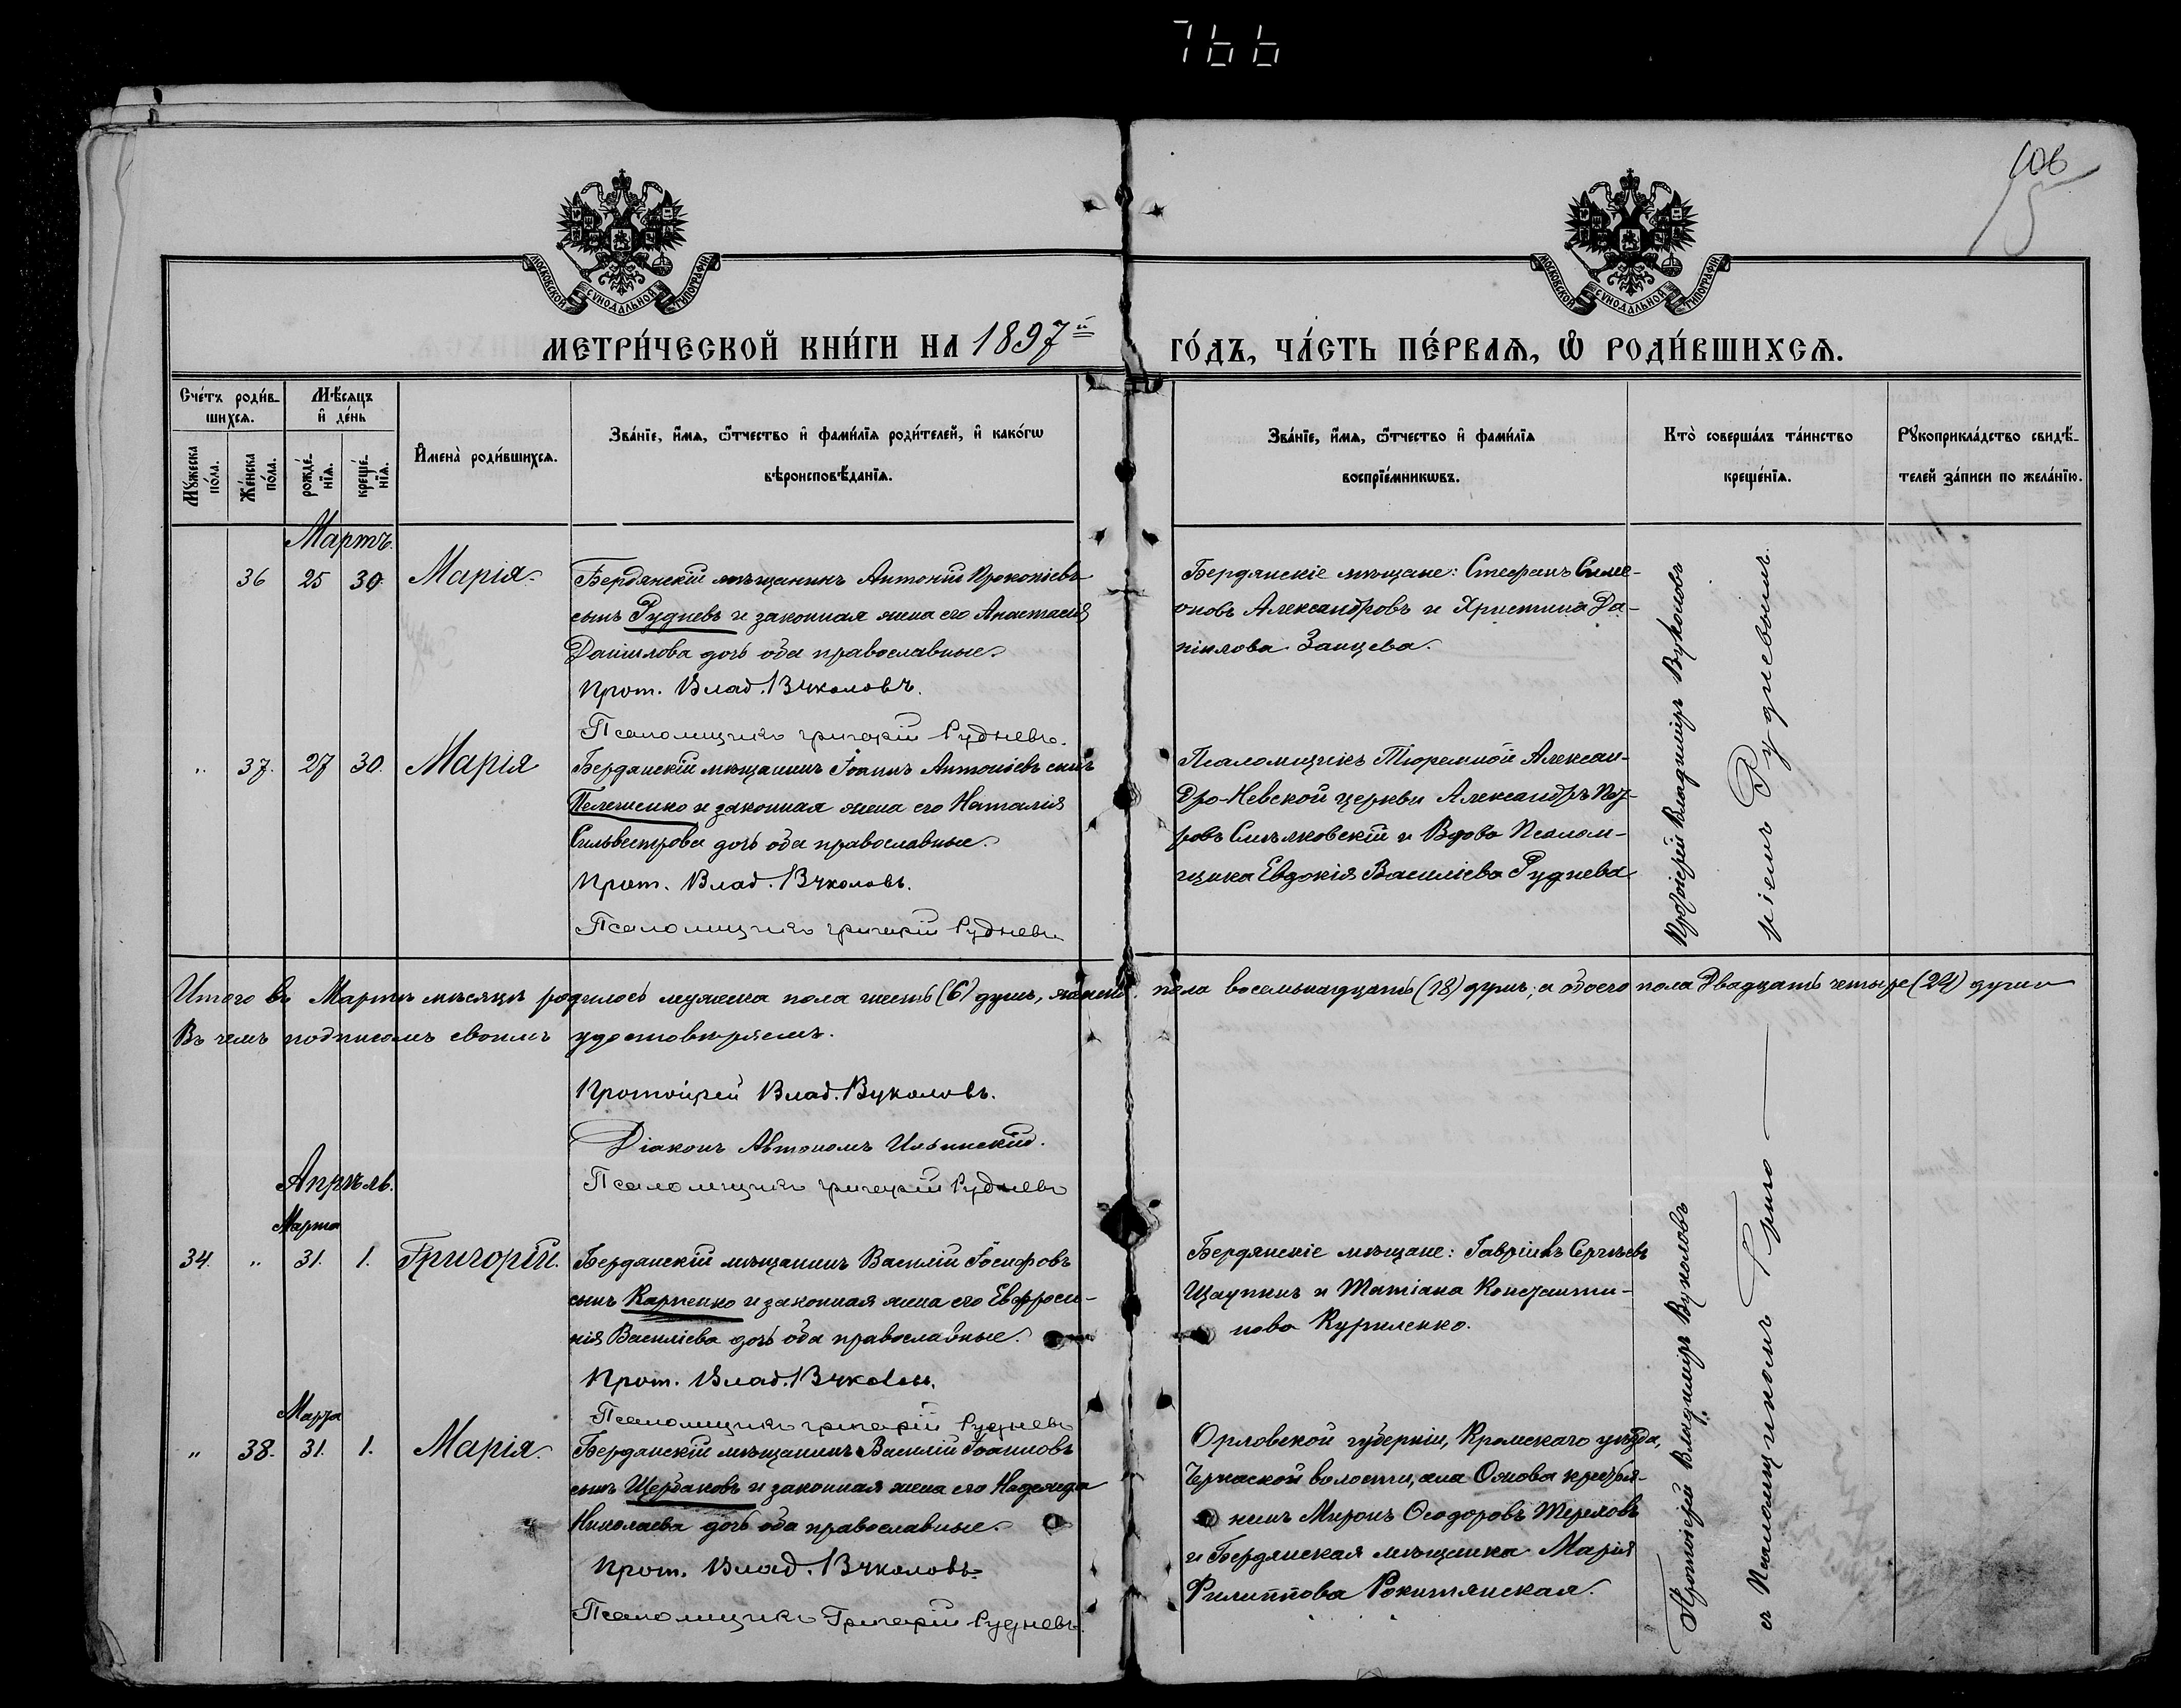 766
106
5
МОСКОВСКОЙ СѴНОДАЛЬНОЙ ТИПОГРАФІИ
МОСКОВСКОЙ СѴНОДАЛЬНОЙ ТИПОГРАФІИ
МЕТРИ́ЧЕСКОЙ КНИ́ГИ НА 1897й ГО́ДЪ, ЧА́СТЬ ПЕ́РВАЯ, Ѽ РОДИ́ВШИХСЯ.
Сче́тъ роди́в-
шихся.
Мѣ́сяцъ
и де́нь
Мꙋ́жеска
по́ла.
Же́нска
по́ла.
рожде́-
нїя.
креще́-
нїя.
Имена̀ роди́вшихся.
Зва́нїе, и́мя, ѿтчество и фами́лїя роди́телей, и како́гѡ
вѣроисповѣ́данїя.
Зва́нїе, и́мя, ѿтчество и фами́лїя
воспрїе́мникѡвъ.
Кто̀ соверша́лъ та́инство
креще́нїя.
Рꙋкоприкла́дство свидѣ́-
телей за́писи по жела́нїю.
Мартъ.
36 25 30. Марія.
Бердянскій мѣщанинъ Антоній Прокопіевъ
сынъ Рудневъ и законная жена его Анастасія
Даніилова дочь оба православные.
Прот. Влад. Вуколовъ.
Псаломщикъ Григорій Рудневъ.
Бердянскіе мѣщане: Стефанъ Симе-
оновъ Александровъ и Христина Да-
ніилова Заицева.
" 37. 27 30. Марія
Бердянскій мѣщанинъ Іоаннъ Антоніевъ сынъ
Пелешенко и законная жена его Наталія
Сильвестрова дочь оба православные.
Прот. Влад. Вуколовъ.
Псаломщикъ Григорій Рудневъ
Псаломщикъ Тюремной Алексан-
дро-Невской церкви Александръ Пет-
ровъ и Вдова Псалом-
щика Евдокія Василіева Руднева
Протоіерей Владиміръ Вуколовъ
ріемъ Рудневымъ.
Итого въ Мартѣ мѣсяцѣ родилось мужеска пола шесть (6) душъ, женска пола восемьнадцать (18) душъ; а обоего пола двадцать четыре (24) души
Въ чемъ подписомъ своимъ удостовѣряемъ.
Протоіерей Влад. Вуколовъ.
Діаконъ Автономъ Ильинскій.
Псаломщикъ Григорій Рудневъ
Апрѣль.
Марта
34. " 31. 1. Григорій.
Бердянскій мѣщанинъ Василій Іосифовъ
сынъ Карпенко и законная жена его Евфроси-
нія Василіева дочь оба православные.
Прот. Влад. Вуколовъ.
Псаломщикъ Григорій Рудневъ
Бердянскіе мѣщане: Гавріилъ Сергѣевъ
Щаупкинъ и Татіана Константи-
нова Куриленко.
Марта
" 38. 31. 1. Марія.
Бердянскій мѣщанинъ Василій Іоанновъ
сынъ Щербаковъ и законная жена его Надежда
Николаева дочь оба православные.
Прот. Влад. Вуколовъ
Псаломщикъ Григорій Рудневъ.
Орловской губерніи, Кромскаго уѣзда,
волости, села крестья-
нинъ Миронъ Ѳеодоровъ Тереховъ
и Бердянская мѣщанка Марія
Филиппова Рокитянская.
Протоіерей Владиміръ Вуколовъ
съ Псаломщикомъ Григо